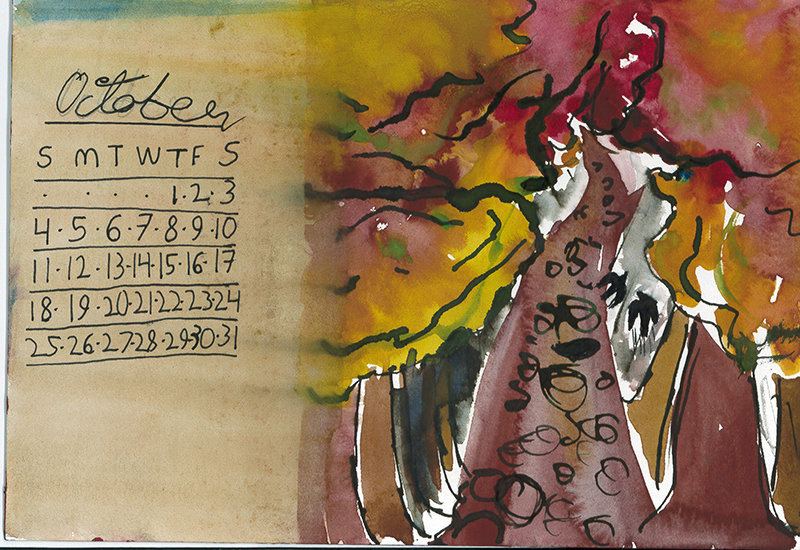 October
S M T W T F S
. . . . 1.2.3
4.5.6.7.8.9.10
11.12.13.14.15.16.17
18.19.20.21.22.23.24
25.26.27.28.29.30.31